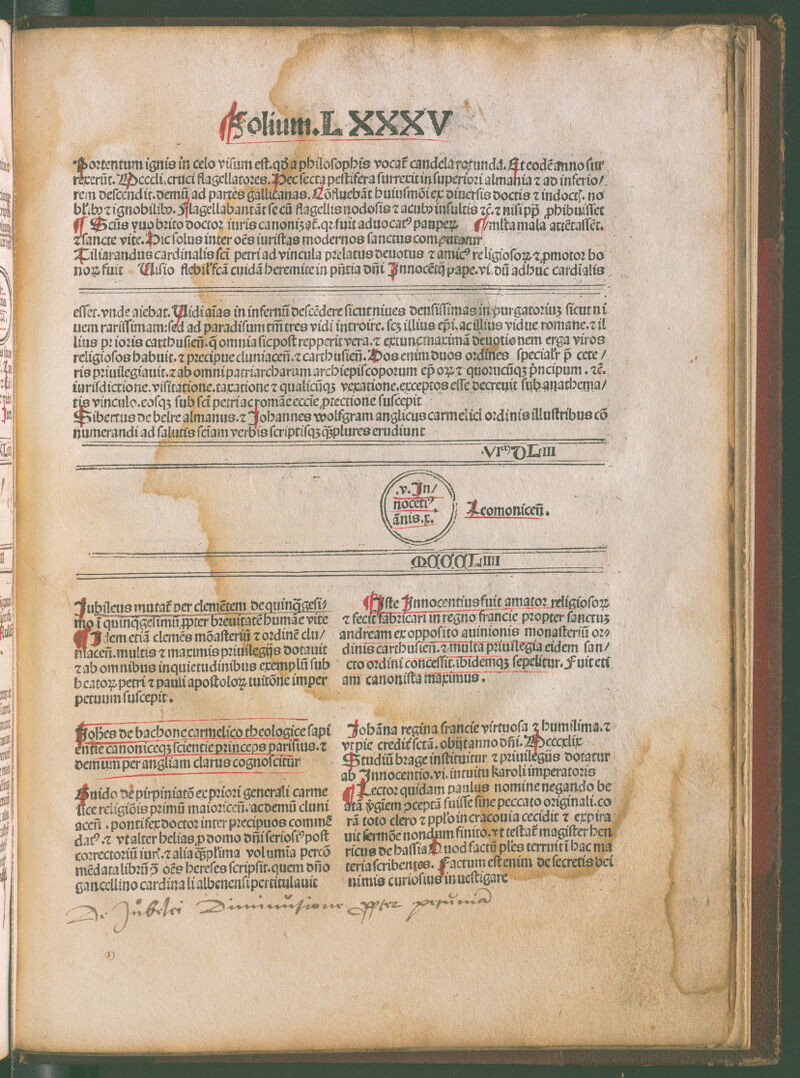 Folium.LXXXV
Portentum ignis in celo visum est. qd̄a philosophis vocat᷑ candela rotunda. Et eodē anno sur
rexerūt. Mcccli. cruci flagellatores. Hec secta pestifera surrexit in superiori almania ⁊ ad inferio/
rem descendit. demū ad partes gallicanas. Cōfluebāt huiusmōi ex diuersis doctis ⁊ indoct᷑. no
bl᷑.bꝫ ⁊ ignobilibꝫ. Flagellabant āt se cū flagellis nodosis ⁊ aculꝫ insultis ⁊c̄. ⁊ nisi pp̄ ꝓhibuisset
¶ Scūs yuo brito doctor iuris canonizat᷑. qr fuit aduocatꝰ pauperꝝ ¶ mlta mala attētasset.
⁊ sancte vite. Hic solus inter oēs iuristas modernos sanctus computatur
Tiliarandus cardinalis sct̄i petri ad vincula prelatus deuotus ⁊ amicꝰ religiosoꝝ ⁊ ꝓmotor bo
noꝝ fuit Uisio flebil᷑ fcā cuidā heremite in pn̄tia dn̄i Innocētij pape. vi. dū adhuc cardialis
esset. vnde aiebat. Uidi aīas in infernū descēdere sicut niues densissimas in purgatoriuꝫ sicut ni
uem rarissimam: sed ad paradisum tm̄ tres vidi introire. scꝫ illius ep̄i. ac illius vidue romane. ⁊ il
lius prioris carthusień. q̄ omnia sic post repperit vera. ⁊ extunc maximā deuotionem erga viros
religiosos habuit. ⁊ precipue cluniaceń. ⁊ carthusień. Hos enim duos ordines specialr̄ p̄ cete/
ris priuilegiauit. ⁊ ab omni patriarcharum archiepiscoporum ep̄oꝝ ⁊ quorūcūqꝫ pn̄cipum. ⁊c̄.
iurisdictione. visitatione. taxatione ⁊ qualicūqꝫ vexatione. exceptos esse decreuit sub anathema/
tis vinculo. eosqꝫ sub sct̄i petri ac romāe eccl̄ie ꝓtectione suscepit
Sibertus de belre almanus. ⁊ Johannes wolfgram anglicus carmelici ordinis illustribus cō
numerandi ad salutis sct̄iam verbis scriptisqꝫ q̄ꝫplures erudiunt
.VIᵐDLIII
.v. In/
nocētiꝰ
ānis.x.
Leomoniceń.
MCCCLIIII
Jubileus mutat᷑ per clemētem de quinq̄gesi/
mo ī quinq̄gesimū ꝓpter breuitatē humāe vite
¶ Idem etiā clemēs mōasteriū ⁊ ordinē clu/
niaceń. multis ⁊ maximis priuilegijs dotauit
⁊ ab omnibus inquietudinibus exemplū sub
beatoꝝ petri ⁊ pauli apostoloꝝ tuitōne imper
petuum suscepit.
¶ Iste Innocentius fuit amator religiosoꝝ
⁊ fecit fabricari in regno francie propter sanctuꝫ
andream ex opposito auinionis monasteriū or/
dinis carthusień. ⁊ multa priuilegia eidem san/
cto ordini concessit. ibidemqꝫ sepelitur. Fuit eti
am canonista maximus.
Joh̄es de bachone carmelico theologice sapi
entie canoniceqꝫ scientie princeps parisius. ⁊
demum per angliam clarus cognoscitur
Guido de pirpiniatō ex priori generali carme
lice religiōis primū maioriceń. ac demū cluni
aceń. pontifex doctor inter precipuos commē
datꝰ. ⁊ vt alter helias ꝓ domo dn̄i seriosiꝰ post
correctoriū iur᷑. ⁊ alia q̄ꝫplima volumia percō
mēdata librū ꝯ̄ oēs hereses scripsit. quem dn̄o
gancellino cardinali albenensi pertitulauit
Johāna regina francie virtuosa ⁊ humilima. ⁊
vt pie credit᷑ sctā. obijt anno dn̄i. Mcccxlix
Studiū brage instituitur ⁊ priuilegijs dotatur
ab Innocentio. vi. intuitu karoli imperatoris
¶ Lector quidam paulus nomine negando be
atā v̄giem ꝯceptā fuisse sine peccato originali. co
rā toto clero ⁊ pplo in cracouia cecidit ⁊ expira
uit sermōe nondum finito. vt testat᷑ magister hen
ricus de hassia Quod factū ples terruit ī hac ma
teria scribentes. Factum est enim de secretis dei
nimis curiosius inuestigare
De Jubelei Diminutione ꝓpter pecuniā